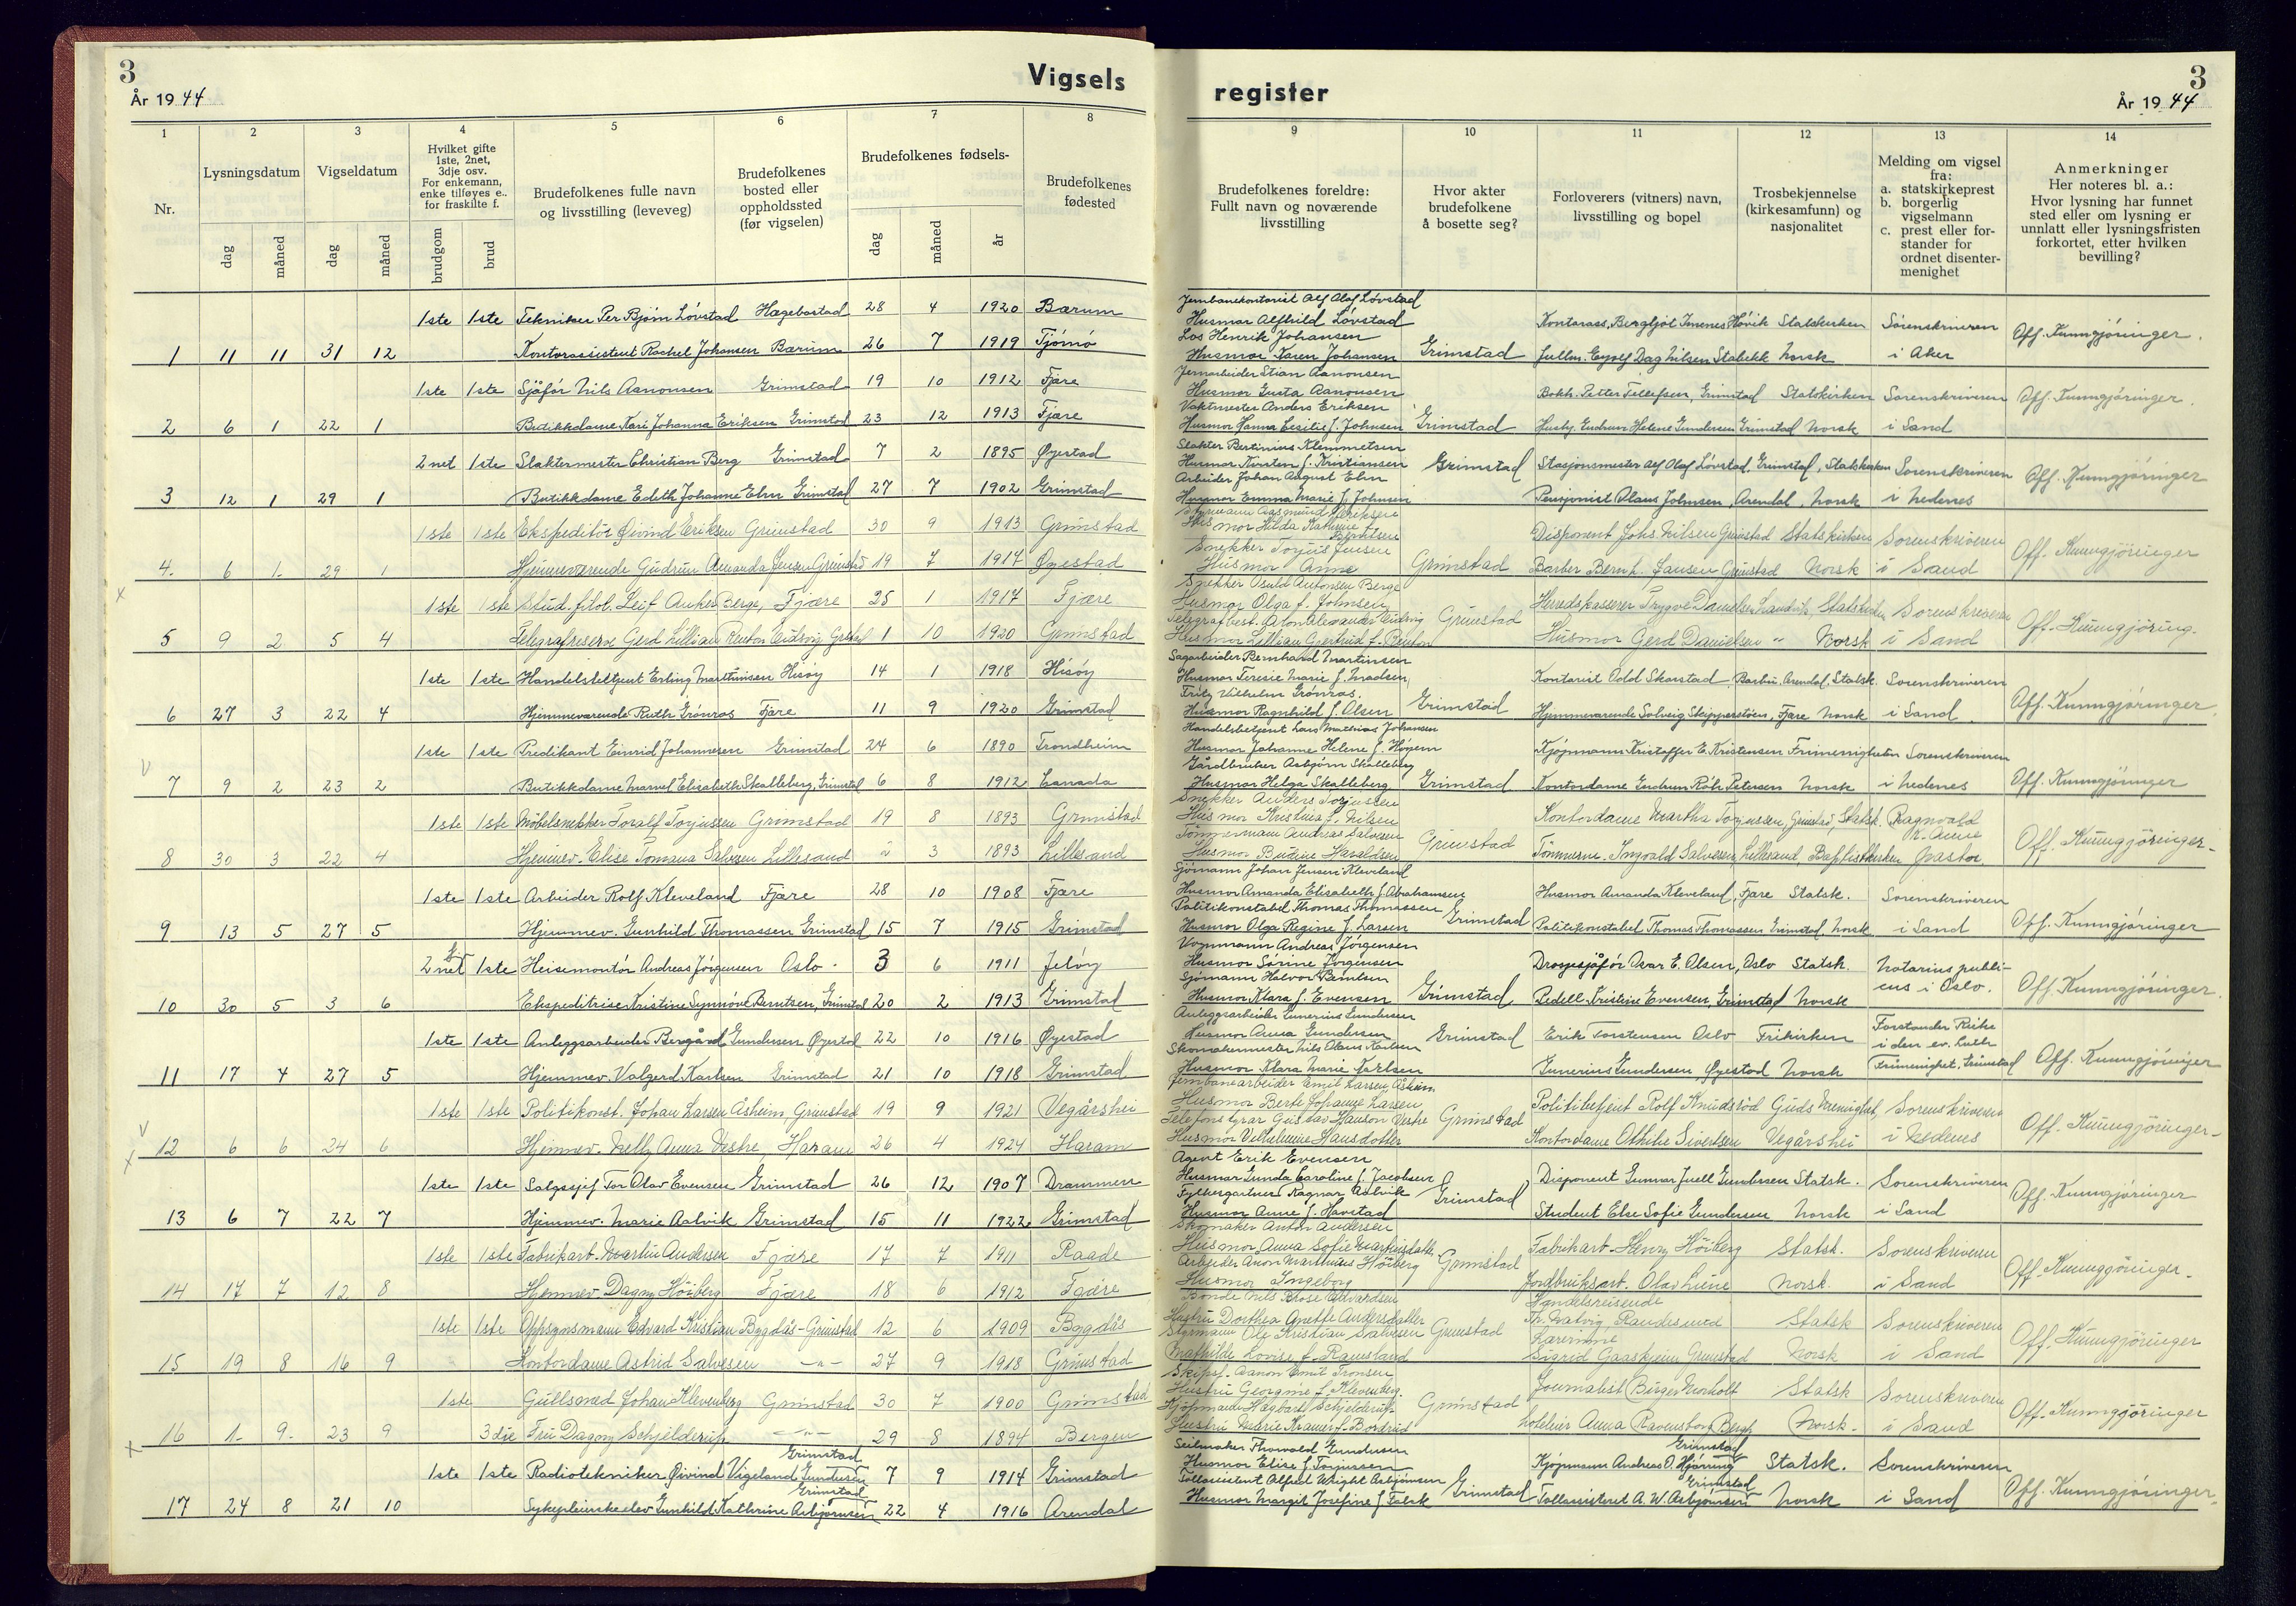 3
Vigsels
År 1944
1 2 3 4 5 6 7 8
Nr.
Lysningsdatum
Vigseldatum
Hvilket gifte
1ste, 2net,
3dje osv.
For enkemann,
enke tilføyes e..
for fraskilte f.
Brudefolkenes fulle navn
og livsstilling (leveveg)
Brudefolkenes
bosted eller
oppholdssted
(før vigselen)
Brudefolkenes fødsels-
Brudefolkenes
fødested
dag måned dag måned brudgom brud dag måned år
1ste 1ste Tekniker Per Bjørn Løvstad Hægebostad 28 4 1920 Bærum
1 11 11 31 12 Kontorassistent Rachel Johansen Bærum 26 7 1919 Tjømø
1ste 1ste Sjåfør Nils Aanonsen Grimstad 19 10 1912 Fjære
2 6 1 22 1 Butikkdame Kari Johanna Eriksen Grimstad 23 12 1913 Fjære
2net 1ste Slaktermester Christian Berg Grimstad 7 2 1895 Øyestad
3 12 1 29 1 Butikkdame Edith Johanne Elm Grimstad 27 7 1902 Grimstad
1ste 1ste Ekspeditør Øivind Eriksen Grimstad 30 9 1913 Grimstad
4. 6 1. 29 1 Hjemmeværende Gudrun Amanda Jensen Grimstad 19 7 1917 Øyestad
x
1ste 1ste Stud. filol. Leif Anker Berge, Fjære 25 1 1917 Fjære
5 9 2 5 4 Telegrafreserve Gerd Lillian Renton Eidsvig Gr.stad 1 10 1920 Grimstad
1ste 1ste Handelsbetjent Erling Martinsen Hisøy 14 1 1918 Hisøy
6 27 3 22 4 Hjemmeværende Ruth Grønros Fjære 11 9 1920 Grimstad
1ste 1ste Predikant Einrid Johannesen Grimstad 24 6 1890 Trondheim
v
7 9 2 23 2 Butikkdame Marvel Elisabeth Skalleberg, Grimstad 6 8 1912 Canada
1ste 1ste Møbelsnekker Toralf Torjussen Grimstad 19 8 1893 Grimstad
8 30 3 22 4 Hjemmev. Elise Tomana Salvesen Lillesand 2 3 1893 Lillesand
1ste 1ste Arbeider Rolf Kleveland Fjære 28 10 1908 Fjære
9 13 5 27 5 Hjemmev. Gunhild Thomassen Grimstad 15 7 1915 Grimstad
2net f 1ste Heisemontør Andreas Jørgensen Oslo. 3 6 1911 Jeløy
10 30 5 3 6 Ekspeditrise Kristine Synnøve Berntsen, Grimstad 20 2 1913 Grimstad
1ste 1ste Anleggsarbeider Bergård Gundersen Øyestad 22 10 1916 Øyestad
11 17 4 27 5 Hjemmev. Valgerd Karlsen Grimstad 21 10 1918 Grimstad
1ste 1ste Politikonst. Johan Larsen Åsheim, Grimstad 19 9 1921 Vegårshei
v
12 6 6 24 6 Hjemmev. Nelly Anna Vestre, Haram 26 4 1924 Haram
x
1ste 1ste Salgssjef Tor Olav Evensen Grimstad 26 12 1907 Drammen
13 6 7 22 7 Hjemmev. Marie Aalvik Grimstad 15 11 1922 Grimstad
1ste 1ste Fabrikarb. Martin Andersen Fjære 17 7 1911 Raade
14 17 7 12 8 Hjemmev. Dagny Høiberg Fjære 18 6 1912 Fjære
1ste 1ste Oppsynsmann Edvard Kristian Bygdås-Grimstad 12 6 1909 Bygdås
15 19 8 16 9 Kontordame Astrid Salvesen -"- 27 9 1918 Grimstad
1ste Gullsmed Johan Klevenberg Grimstad 30 7 1900 Grimstad
16 1. 9. 23 9 3dje Fru Dagny Schjelderup -"- 29 8 1894 Bergen
x
Grimstad
1ste 1ste Radiotekniker Øivind Vigeland Gundersen 7 9 1914 Grimstad
Grimstad
17 24 8 21 10 Sykepleierskeelev Gunhild Kathrine Asbjørnsen 22 4 1916 Arendal
register
3
År 1944
9 10 11 12 13 14
Brudefolkenes foreldre:
Fullt navn og noværende
livsstilling
Hvor akter
brudefolkene
å bosette seg?
Forloverers (vitners) navn,
livsstilling og bopel
Trosbekjennelse
(kirkesamfunn) og
nasjonalitet
Melding om vigsel
fra:
a. statskirkeprest
b. borgerlig
vigselmann
c. prest eller for-
stander for
ordnet disenter-
menighet
Anmerkninger
Her noteres bl. a.:
Hvor lysning har funnet
sted eller om lysning er
unnlatt eller lysningsfristen
forkortet, etter hvilken
bevilling?
Jernbanekontorist Alf Olaf Løvstad
Husmor Alfhild Løvstad
Los Henrik Johansen
Husmor Karen Johansen
Grimstad
Kontorass. Bergljot Imenes Høvik Statskirken
Fullm. Eyolf Dag Nilsen Stabekk Norsk
Sorenskriveren
i Aker
Off. Kunngjøringer.
Jernarbeider Stian Aanonsen
Husmor Gusta Aanonsen
Vaktmester Anders Eriksen
Husmor Hanna Cecilie f. Johnsen
Grimstad
Bokh. Petter Tellefsen, Grimstad Statskirken
Husby. Gudrun Helene Gundersen Grimstad Norsk
Sorenskriveren
i Sand
Off. Kunngjøringer.
Slakter Bertinius Klemmetsen
Husmor Kirsten f. Kristiansen
Arbeider Johan August Elm
Husmor Emma Marie f. Johnsen
Grimstad
Stasjonsmester Alf Olaf Løvstad, Grimstad, Statskirken
Pensjonist Olaus Johnsen, Arendal, Norsk
Sorenskriveren
i Nedenes
Off. Kunngjøringer
Styrmann Aasmund Eriksen
Husmor Hilda Kathrine f.
Berntsen
Snekker Torjus Jensen
Husmor Anne
Grimstad
Disponent Johs. Nilsen Grimstad Statskirken
Barber Bernh. Jansen Grimstad Norsk
Sorenskriveren
i Sand
Off. Kunngjøringer
Snekker Osuld Antonsen Berge
Husmor Olga f. Johnsen
Telegrafbest. Alexander Eidsvig
Husmor Lillian Gjertrud f. Renton
Grimstad
Herredskasserer Trygve Danielsen Landvik, Statskirken
Husmor Gerd Danielsen " Norsk
Sorenskriveren
i Sand
Off. Kunngjøring.
Sagarbeider Bernhard Martinsen
Husmor Teresie Marie f. Madsen,
Fritz Vilhelm Grønros.
Husmor Ragnhild f. Olsen
Grimstad
Kontorist Odd Skarstad, Barbu, Arendal, Statsk.
Hjemmeværende Solveig Skipperstøen, Fjære Norsk
Sorenskriveren
i Sand.
Off. Kunngjøringer.
Handelsbetjent Lars Mathias Johansen
Husmor Johanne Helene f. Høyem
Gårdbruker Asbjørn Skalleberg
Husmor Helga Skalleberg
Grimstad
Kjøpmann Kristoffer E. Kristensen Frimenigheten
Kontordame Gudrun Röh Petersen Norsk
Sorenskriveren
i Nedenes
Off. Kunngjøringer
Snekker Anders Torjussen
Husmor Kristina f. Nilsen
Tømmermann Andreas Salvesen
Husmor Budine Haraldsen
Grimstad
Kontordame Martha Torjussen, Grimstad, Statsk.
Tømmerm. Ingvald Salvesen, Lillesand, Baptistkirken
Ragnvald
Pastor
Off. Kunngjøringer.
Sjømann Johan Jensen Kleveland
Husmor Amanda Elisabeth f. Abrahamsen
Politikonstabel Thomas Thomassen
Husmor Olga Regine f. Larsen
Grimstad
Husmor Amanda Kleveland, Fjære Statsk.
Politikonstabel Thomas Thomassen Grimstad, Norsk
Sorenskriveren
i Sand
Off. Kunngjøringer
Vognmann Andreas Jørgensen
Husmor Sørine Jørgensen
Sjømann Halvor Berntsen
Husmor Klara f. Evensen
Grimstad
Drosjesjåfør Ivar E. Olsen, Oslo Statsk.
Pedell Kristine Evensen, Grimstad Norsk
Notarius publi-
cus i Oslo.
Off. Kunngjøringer.
Anleggsarbeider Gunerius Gundersen
Husmor Anna Gundersen
Skomakermester Nils Olaus Karlsen
Husmor Klara Marie Karlsen
Grimstad
Erik Torstensen Oslo Frikirken
Gunerius Gundersen Øyestad Norsk
Forstander Rieke
i den ev. Luth
Frimenighet, Grimstad
Off. Kunngjøringer
Jernbanearbeider Emil Larsen Åsheim
Husmor Berte Johanne Larsen
Telefonstyrar Gustav Hanson Vestre
Husmor Vilhelmine Hansdotter
Grimstad
Politibetjent Rolf Knudsrød Guds Menighet,
Kontordame Othilie Sivertsen Vegårshei
Sorenskriveren
i Nedenes
Off. Kunngjøringer.
Agent Erik Evensen
Husmor Gunda Caroline f. Jacobsen
Fylkesgartner Ragnar Aalvik
Husmor Anne f. Havstad
Grimstad
Disponent Gunnar Juell Gundersen Statsk.
Student Else Sofie Gundersen Norsk
Sorenskriveren
i Sand
Off. Kunngjøringer
Skomaker Anton Andersen
Husmor Anna Sofie Martinsdatter
Arbeider Aron Matthias Høiberg
Husmor Ingeborg
Grimstad
Fabrikarb. Henry Høiberg Statsk.
Jordbruksarb. Olav Liene Norsk.
Sorenskriveren
i Sand
Off. Kunngjøringer.
Bonde Nils Edvardsen
Hustru Dorthea Anette Andersdatter
Styrmann Ole Kristian Salvesen
Mathilde Lovise f. Ramsland
Grimstad
Handelsreisende
Th. Natvig Randesund Statsk
Lærerinne
Sigrid Gaaskjenn Grimstad Norsk
Sorenskriveren
i Sand
Off. Kunngjøringer
Skipsf. Aanon Emil Tronsen
Hustru Georgine f. Klevenberg.
Kjøpmann Hagbart Schjelderup
Hustru Marie Kramer f. Bordrid
Grimstad
Journalist Birger Morholt Statsk
Hoteleier Anna Ravnsborg Bergh Norsk.
Sorenskriveren
i Sand
Off. Kunngjøringer
Seilmaker Thorvald Gundersen
Husmor Elise f. Torjussen
Tollassistent Alfred Wright Asbjørnsen
Husmor Margit Josefine f. Falck
Grimstad
Grimstad
Kjøpmann Andreas O. Hjørring Statsk.
Grimstad
Tollassistent A. W. Asbjørnsen Norsk
Sorenskriveren
i Sand
Off. Kunngjøringer.